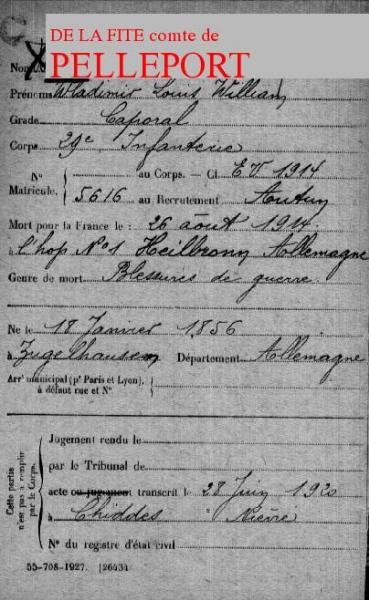 DE LA FITE comte de
PELLEPORT
Nom
Prénoms Wladimir Louis William
Grade Caporal
Corps 29e Infanterie
No au Corps. — Cl. EV 1914
Matricule. 5616 au Recrutement Autun
Mort pour la France le : 26 août 1914
à l'hop No 1 Heilbronn Allemagne
Genre de mort Blessures de guerre
Né le 18 Janvier 1856
à Zugelhausen Département Allemagne
Arrt municipal (pr Paris et Lyon), à défaut rue et No
Cette partie n'est pas à remplir par le Corps.
Jugement rendu le
par le Tribunal de
acte ou jugement transcrit le 28 Juin 1920
à Chiddes Nièvre
No du registre d'état civil
55-708-1927. [26434